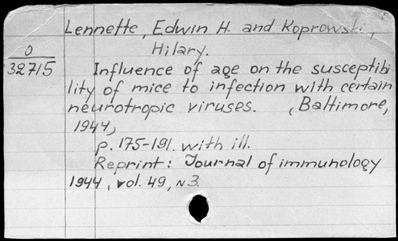 Lennette, Edwin H. and Koprowski,
Hilary.
0
32715
Influence of age on the susceptibi
lity of mice to infection with certain
neurotropic viruses. (Baltimore,
1944)
p. 175-191. with ill.
Reprint: Journal of immunology
1944, vol. 49, N3.